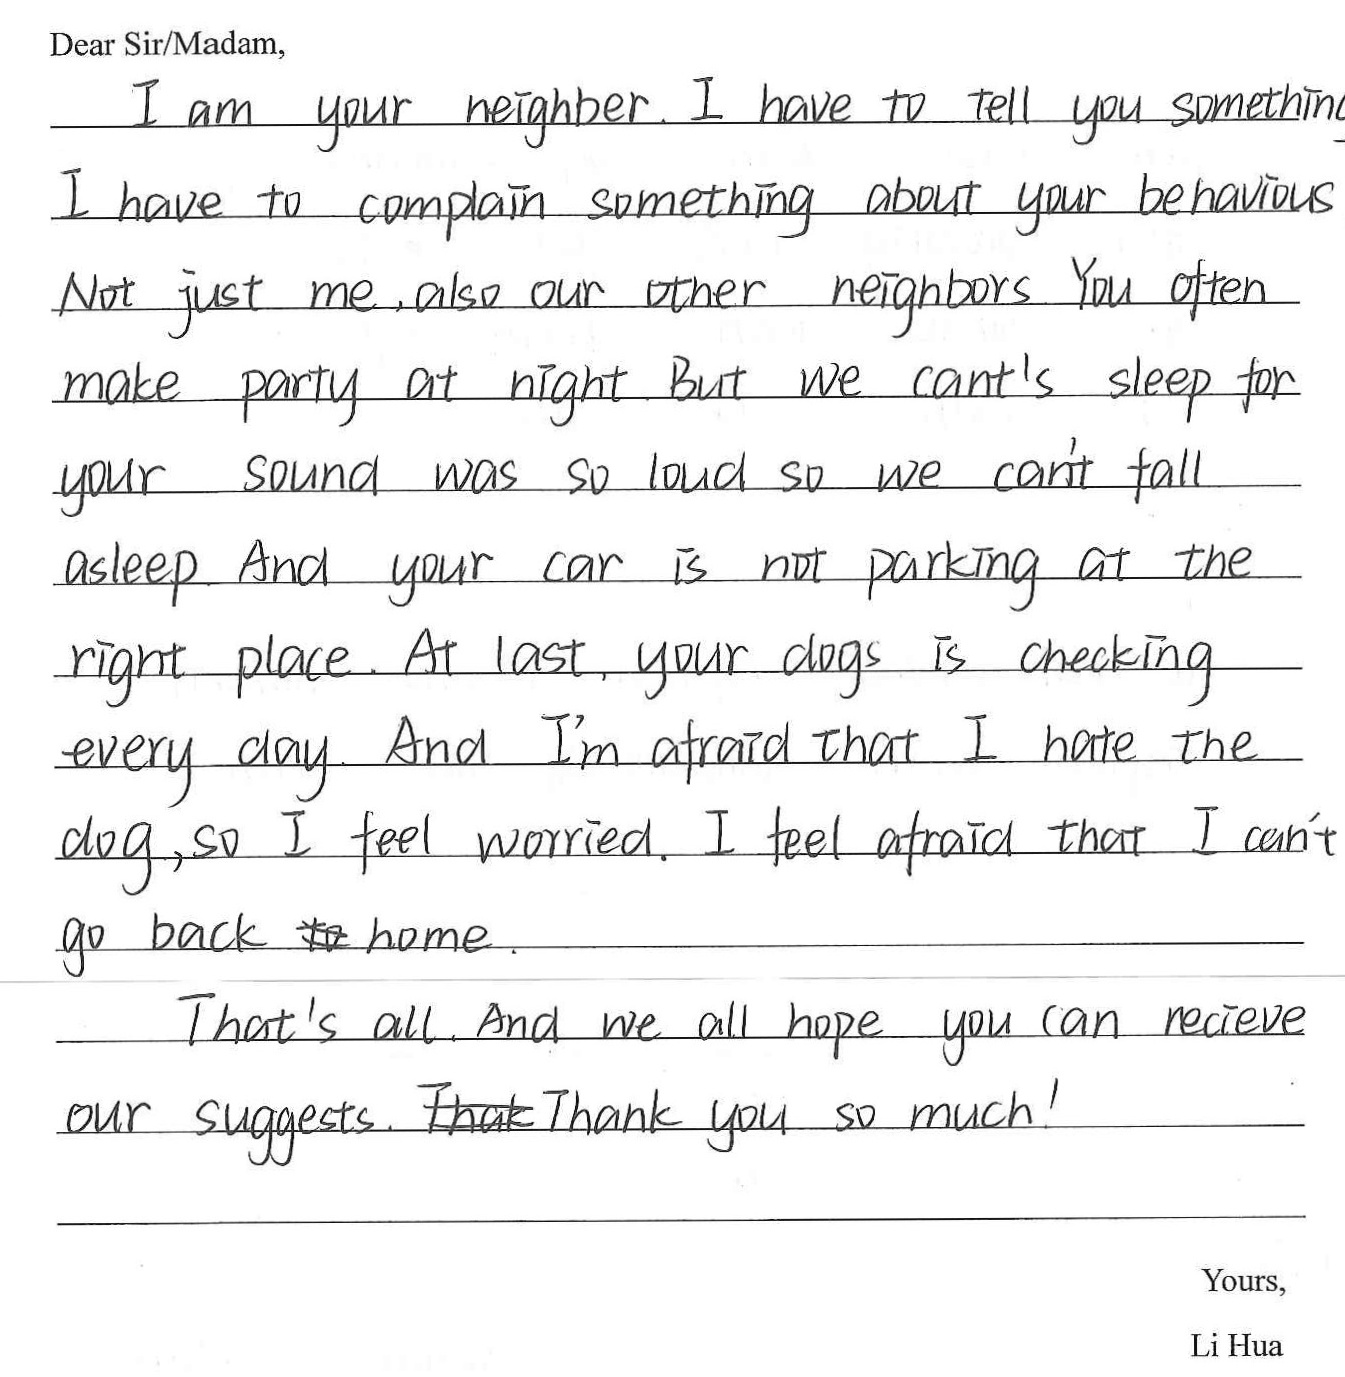 Dear Sir/Madam,
I am your neighber. I have to tell you something
I have to complain something about your behavious
Not just me, also our other neighbors You often
make party at night But we cant's sleep for
your sound was so loud so we can't fall
asleep. And your car is not parking at the
right place. At last, your dogs is checking
every day. And I'm afraid that I hate the
dog, so I feel worried. I feel afraid that I can't
go back home.
That's all. And we all hope you can recieve
our suggests. Thank you so much!
Yours,
Li Hua